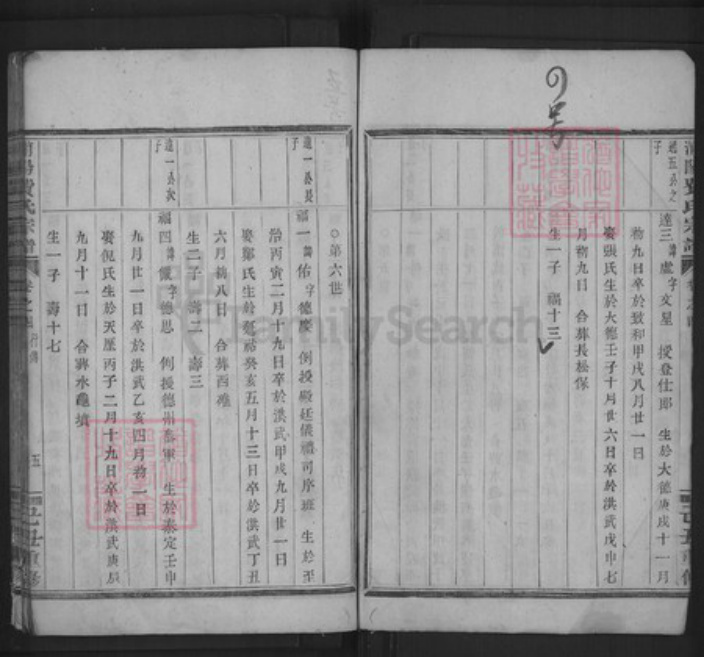 四号
達三
諱盧字文星 授登仕郎 生於大德庚戌十一月
初九日卒於致和甲戌八月廿一日
娶張氏生於大德壬子十月廿六日卒於洪武戊申七
月初九日 合葬長松保
生一子 福十三
○第六世
達一公長子
福一
諱佑字德慶 例授殿廷儀禮司序班 生於至
治丙寅二月十九日卒於洪武甲戌九月廿一日
娶鄭氏生於延祐癸亥五月十三日卒於洪武丁丑
六月初八日 合葬西礁
生二子 壽二 壽三
達一公次子
福四
諱儀字德恩 例授德州參軍 生於泰定壬申
九月廿一日卒於洪武乙亥四月初一日
娶倪氏生於天歷丙子二月十九日卒於洪武庚辰
九月十一日 合葬水礁墳
生一子 壽十七
氏宗譜
五
乙丑重修
FamilySearch